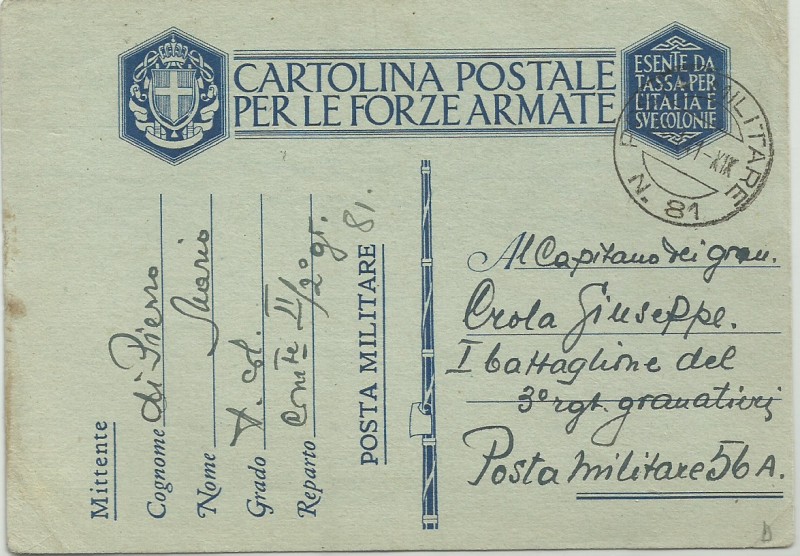 CARTOLINA POSTALE
PER LE FORZE ARMATE
ESENTE DA
TASSA PER
L'ITALIA E
SVE COLONIE
POSTA MILITARE
N. 81
1-XIX
Mittente
Cognome di Pierro
Nome Mario
Grado T. Col.
Reparto Com.te II/2º gr.
POSTA MILITARE 81.
Al Capitano dei gran.
Crola Giuseppe.
I battaglione del
3º rgt. granatieri
Posta militare 56 A.
D